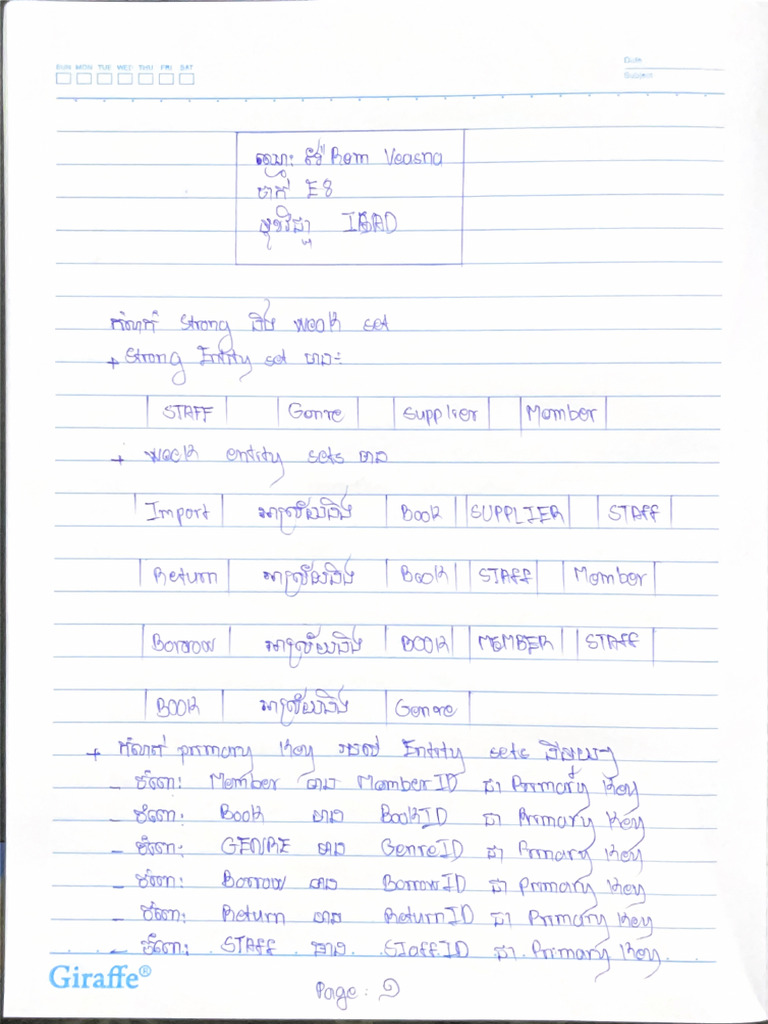 SUN MON TUE WED THU FRI SAT
Date
Subject
ឈ្មោះ រ៉ម Rom Veasna
ថ្នាក់ E8
មុខវិជ្ជា ISAD
កំណត់ Strong និង weak set
+ Strong Entity set មាន:
STAFF Genre Supplier Member
+ weak entity sets មាន
Import អាស្រ័យនឹង Book SUPPLIER STAFF
Return អាស្រ័យនឹង Book STAFF Member
Borrow អាស្រ័យនឹង BOOK MEMBER STAFF
BOOK អាស្រ័យនឹង Genre
+ កំណត់ primary Key របស់ Entity sets នីមួយៗ
- ចំពោះ Member មាន MemberID ជា Primary Key
- ចំពោះ Book មាន BookID ជា Primary Key
- ចំពោះ GENRE មាន GenreID ជា Primary Key
- ចំពោះ Borrow មាន BorrowID ជា primary Key
- ចំពោះ Return មាន ReturnID ជា Primary Key
- ចំពោះ STAFF មាន StaffID ជា Primary Key
Giraffe®
Page: ១